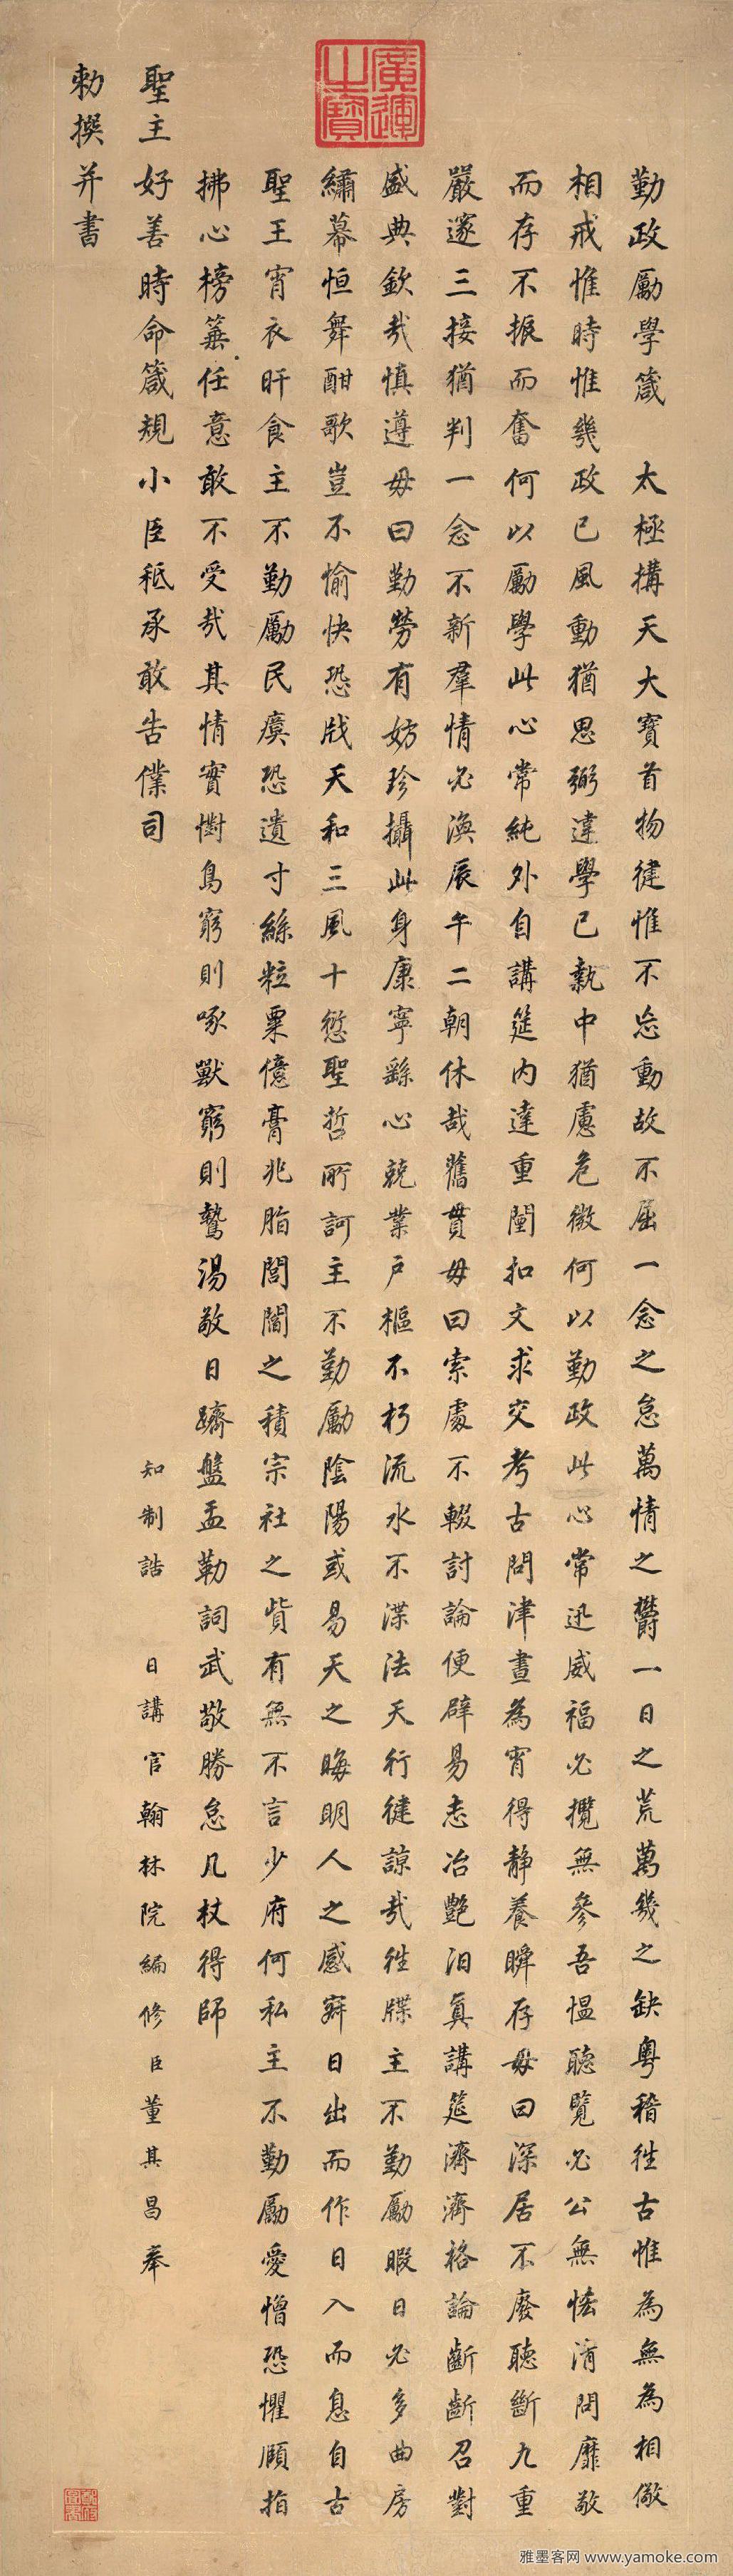 廣運之寶
勤政勵學箴　太極搆天大寶首物健惟不息動故不屈一念之怠萬情之欝一日之荒萬幾之缺粵稽徃古惟為無為相儆
相戒惟時惟幾政已風動猶思弼違學已執中猶慮危微何以勤政此心常迅威福必攬無參吾慍聽覽必公無恡清問靡敢
而存不振而奮何以勵學此心常純外自講筵內達重闈扣文求交考古問津晝為宵得靜養瞬存毋曰深居不廢聽斷九重
嚴邃三接猶判一念不新羣情必渙辰午二朝休哉舊貫毋曰索處不輟討論便辟易志冶艷汨真講筵濟濟格論齗齗召對
盛典欽哉慎遵毋曰勤勞有妨珍攝此身康寧繇心兢業戶樞不朽流水不渫法天行健諒哉徃牒主不勤勵暇日必多曲房
繡幕恒舞酣歌豈不愉快恐戕天和三風十愆聖哲所訶主不勤勵陰陽或易天之晦明人之感寐日出而作日入而息自古
聖王宵衣旰食主不勤勵民瘼恐遺寸絲粒粟億膏兆脂閭閻之積宗社之貲有無不言少府何私主不勤勵愛憎恐懼頤指
拂心榜箠任意敢不受哉其情實懟鳥窮則啄獸窮則鷙湯敬日躋盤盂勒詞武敬勝怠几杖得師
聖主好善時命箴規小臣秪承敢告僕司　知制誥　日講官翰林院編修臣董其昌奉
勅撰并書
雅墨客网 www.yamoke.com